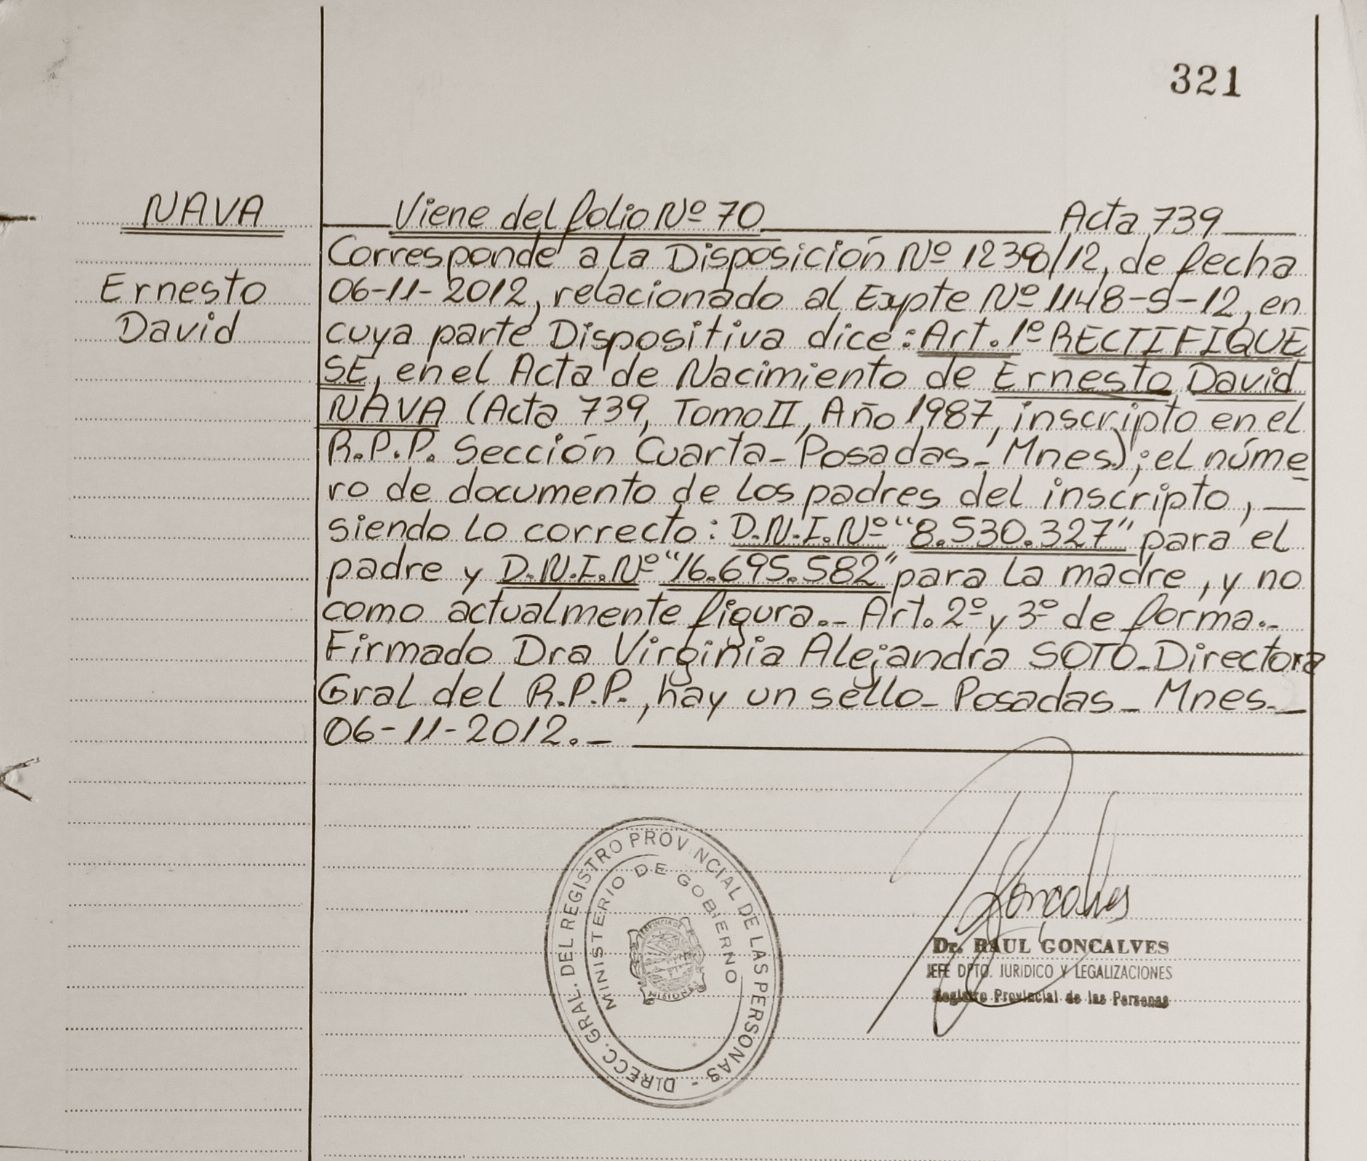 321
NAVA
Ernesto
David
Viene del folio Nº 70 Acta 739
Corresponde a la Disposición Nº 1238/12, de fecha
06-11-2012, relacionado al Expte Nº 1148-S-12, en
cuya parte Dispositiva dice: Art. 1º RECTIFIQUE
SE, en el Acta de Nacimiento de Ernesto David
NAVA (Acta 739, Tomo II, Año 1987, inscripto en el
R.P.P. Sección Cuarta- Posadas- Mnes); el núme
ro de documento de los padres del inscripto, —
siendo lo correcto: D.N.I. Nº "8.530.327" para el
padre y D.N.I. Nº "16.695.582" para la madre, y no
como actualmente figura.- Art. 2º y 3º de forma.-
Firmado Dra Virginia Alejandra SOTO-Directora
Gral del R.P.P., hay un sello- Posadas- Mnes.-
06-11-2012.-
DIRECC. GRAL. DEL REGISTRO PROVINCIAL DE LAS PERSONAS -
MINISTERIO DE GOBIERNO
Goncalves
Dr. RAUL GONCALVES
JEFE DPTO. JURIDICO Y LEGALIZACIONES
Registro Provincial de las Personas